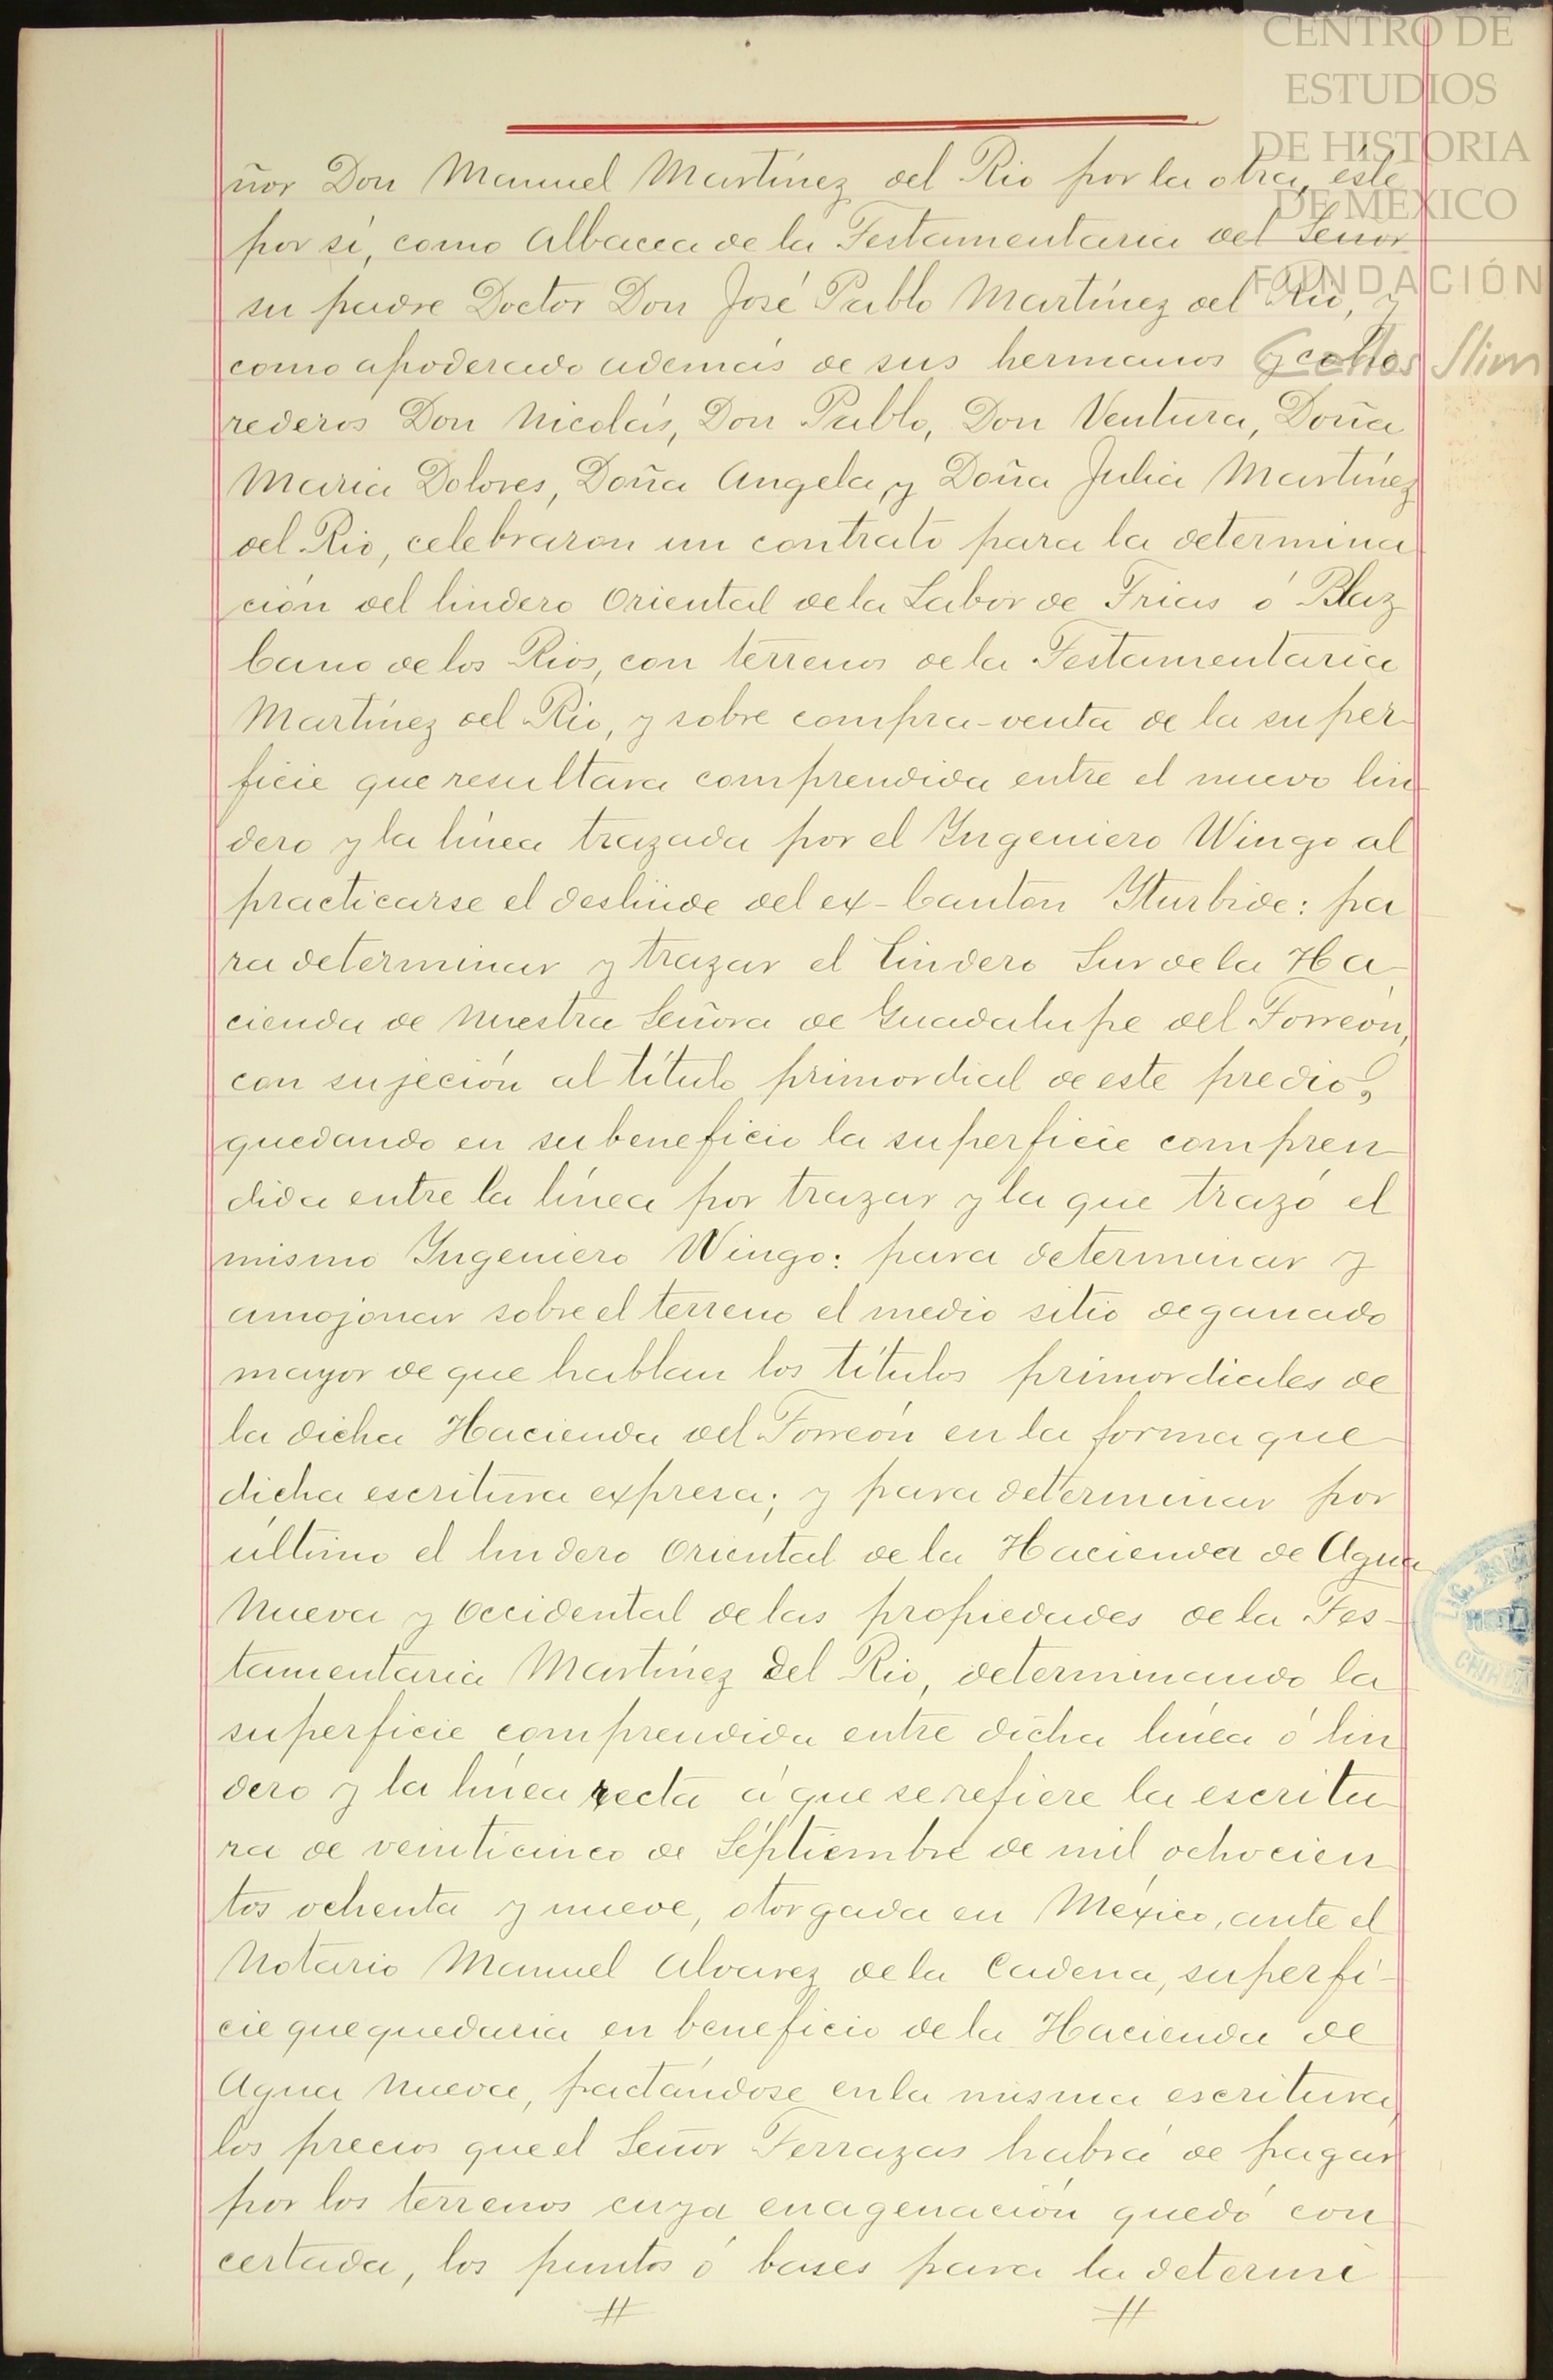 CENTRO DE
ESTUDIOS
DE HISTORIA
DE MÉXICO
FUNDACIÓN
Carlos Slim
ñor Don Manuel Martínez del Rio por la otra, éste
por sí, como Albacea de la Testamentaria del Señor
su padre Doctor Don José Pablo Martínez del Rio, y
como apoderado además de sus hermanos y cohe
rederos Don Nicolás, Don Pablo, Don Ventura, Doña
Maria Dolores, Doña Angela y Doña Julia Martínez
del Rio, celebraron un contrato para la determina
ción del lindero Oriental de la Labor de Frias ó Blaz
Cano de los Rios, con terrenos de la Testamentaria
Martínez del Rio, y sobre compra-venta de la super-
ficie que resultara comprendida entre el nuevo lin
dero y la línea trazada por el Yngeniero Wingo al
practicarse el deslinde del ex-Canton Yturbide: pa
ra determinar y trazar el lindero Sur de la Ha
cienda de Nuestra Señora de Guadalupe del Torreón,
con sujeción al título primordial de este predio,
quedando en su beneficio la superficie compren
dida entre la línea por trazar y la que trazó el
mismo Yngeniero Wingo: para determinar y
amojonar sobre el terreno el medio sitio de ganado
mayor de que hablan los títulos primordiales de
la dicha Hacienda del Torreón en la forma que
dicha escritura expresa; y para determinar por
último el lindero Oriental de la Hacienda de Agua
Nueva y Occidental de las propiedades de la Tes-
tamentaria Martínez del Rio, determinando la
superficie comprendida entre dicha línea ó lin
dero y la línea recta á que se refiere la escritu
ra de veinticinco de Septiembre de mil ochocien
tos ochenta y nueve, otorgada en México, ante el
Notario Manuel Alvarez de la Cadena, superfi-
cie que quedaria en beneficio de la Hacienda de
Agua Nueva, pactándose en la misma escritura,
los precios que el Señor Terrazas habrá de pagar
por los terrenos cuya enagenación quedó con
certada, los puntos ó bases para la determi
LIC.